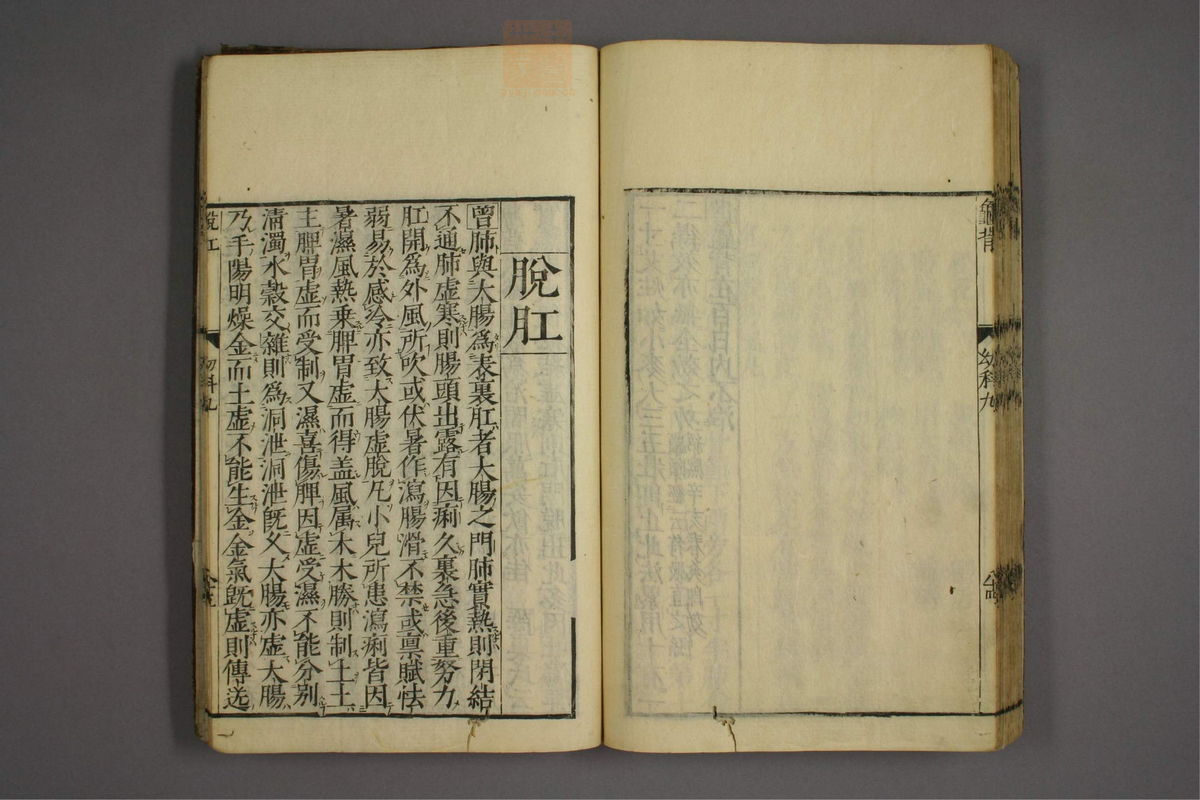 龜背
幼科九
脫肛
曾肺與大腸為表裏肛者大腸之門肺實熱則閉結
不通肺虛寒則腸頭出露有因痢久裏急後重努力
肛開為外風所吹或伏暑作瀉腸滑不禁或稟賦怯
弱易於感冷亦致大腸虛脫凡小兒所患瀉痢皆因
暑濕風熱乗脾胃虛而得盖風属木木勝則制土土
主脾胃虛而受制又濕喜傷脾因虛受濕不能分別
清濁水穀交雜則為洞泄洞泄旣久大腸亦虛大腸
乃手陽明燥金而土虛不能生金金氣旣虛則傳送
脫肛
幼科九